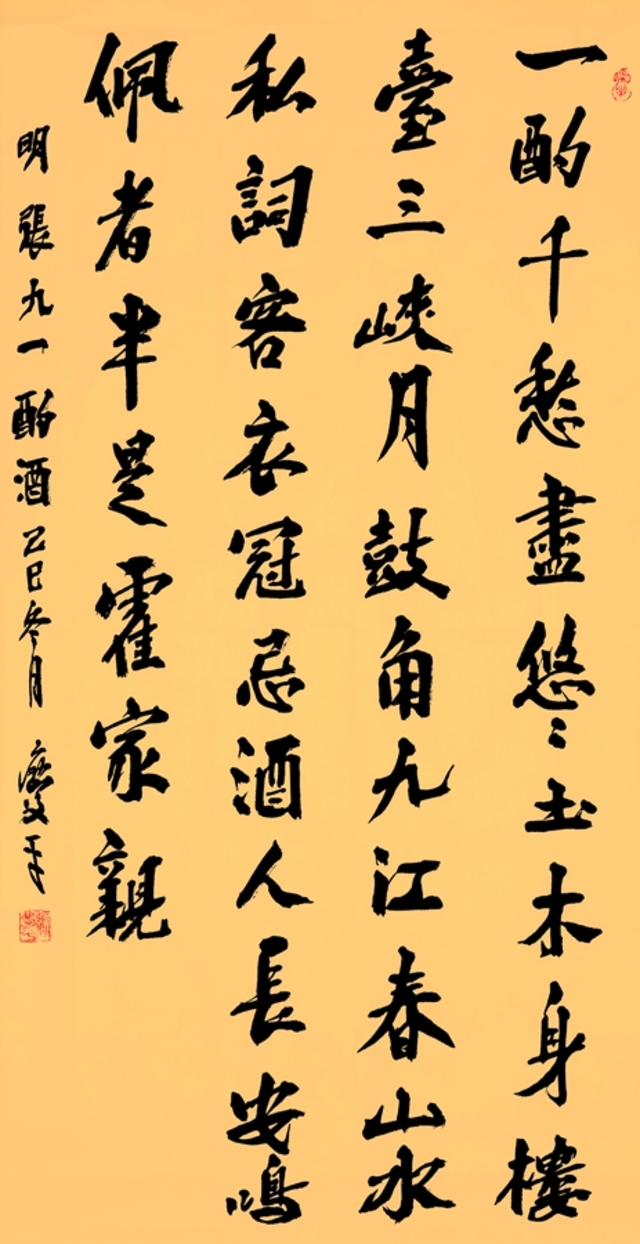 一酌千愁盡悠〻土木身樓
臺三峽月鼓角九江春山水
私詞客衣冠忌酒人長安鳴
佩者半是霍家親
明張九一酌酒己巳冬月